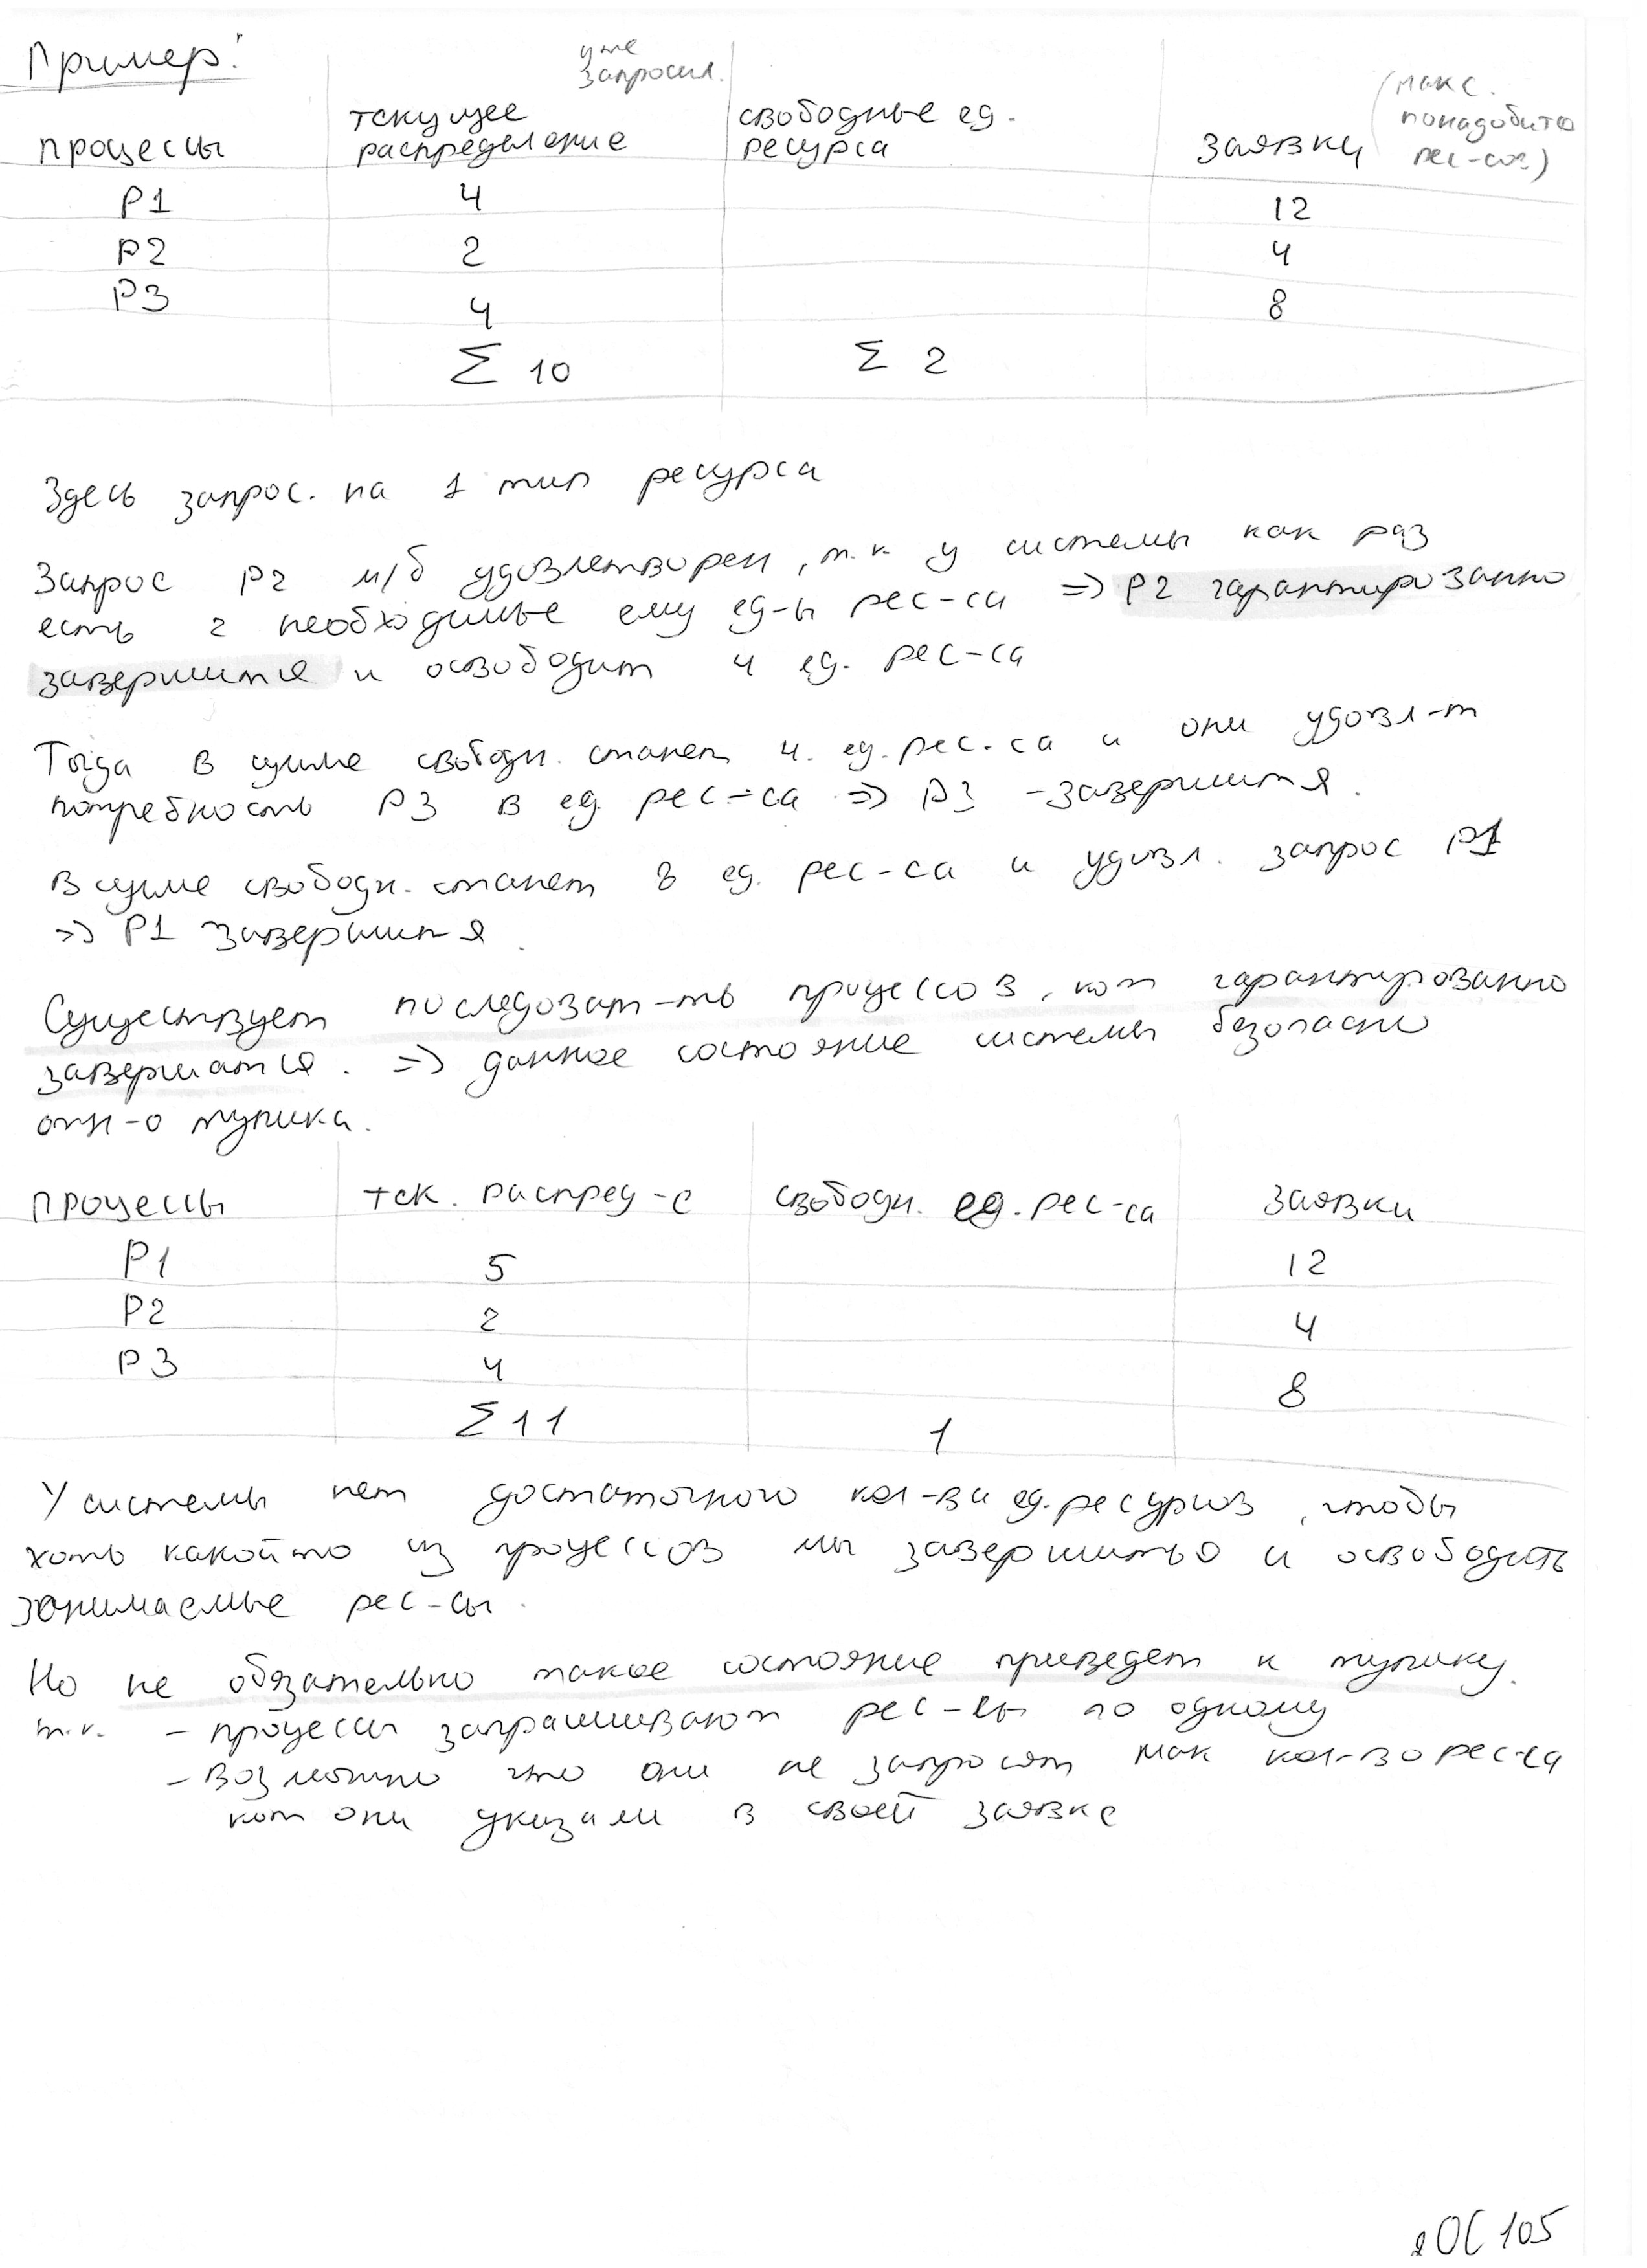 Пример:
уже
запросил.
(макс.
понадобится
рес-сов)
процессы | текущее распределение | свободные ед. ресурса | заявки
P1 4 12
P2 2 4
P3 4 8
Σ 10 Σ 2
Здесь запрос. на 1 тип ресурса
Запрос P2 м/б удовлетворен, т.к у системы как раз
есть 2 необходимые ему ед-ы рес-са => P2 гарантированно
завершится и освободит 4 ед. рес-са
Тогда в сумме свободн. станет 4. ед. рес-са и они удовл-т
потребность P3 в ед. рес-са => P3 - завершится.
В сумме свободн. станет 8 ед. рес-са и удовл. запрос P1
=> P1 завершится.
Существует последоват-ть процессов, кот гарантированно
завершатся. => данное состояние системы безопасно
отн-о тупика.
процессы тек. распред-е свободн. ед. рес-са заявки
P1 5 12
P2 2 4
P3 4 8
Σ 11 1
У системы нет достаточного кол-ва ед. ресурсов, чтобы
хоть какой то из процессов мг завершиться и освободить
занимаемые рес-сы.
Но не обязательно такое состояние приведет к тупику.
т.к. - процессы запрашивают рес-сы по одному
- Возможно что они не запросят мак кол-во рес-са
кот они указали в своей заявке
ОС 105